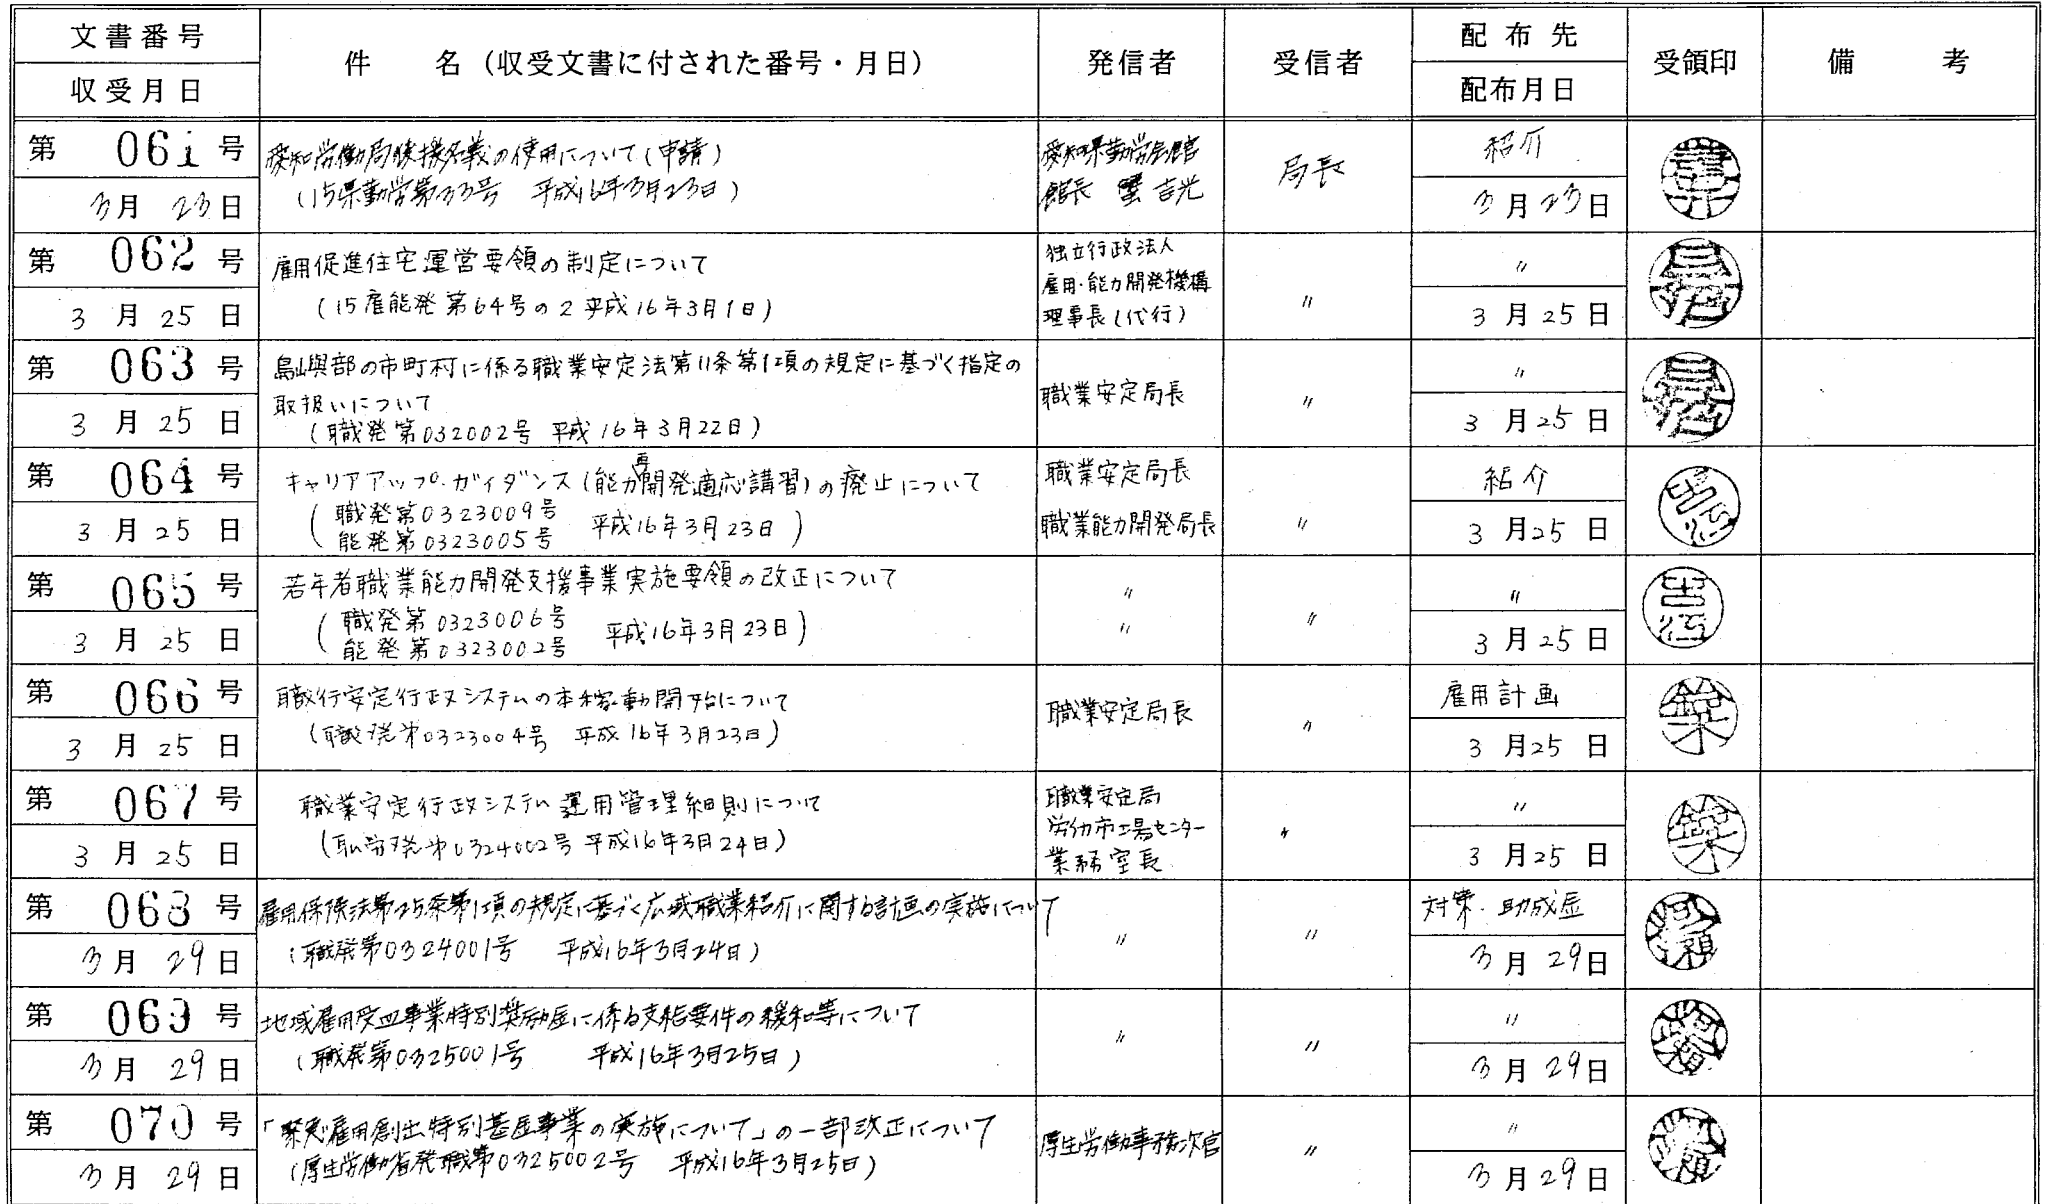 文書番号
収受月日
件 名（収受文書に付された番号・月日）
発信者
受信者
配布先
配布月日
受領印
備 考
第 061 号
3月 23日
愛知労働局後援名義の使用について（申請）
（15県勤労第33号 平成16年3月23日）
愛知県勤労会館
館長 吉光
局長
紹介
3月23日
第 062 号
3月25日
雇用促進住宅運営要領の制定について
（15雇能発第64号の2 平成16年3月1日）
独立行政法人
雇用・能力開発機構
理事長（代行）
〃
〃
3月25日
第 063 号
3月25日
島嶼部の市町村に係る職業安定法第11条第1項の規定に基づく指定の
取扱いについて
（職発第032002号 平成16年3月22日）
職業安定局長
〃
〃
3月25日
第 064 号
3月25日
キャリアアップ・ガイダンス（能力再開発適応講習）の廃止について
（職発第0323009号
能発第0323005号 平成16年3月23日）
職業安定局長
職業能力開発局長
〃
紹介
3月25日
第 065 号
3月25日
若年者職業能力開発支援事業実施要領の改正について
（職発第0323006号
能発第0323002号 平成16年3月23日）
〃
〃
〃
〃
3月25日
第 066 号
3月25日
職行安定行政システムの本稼動開始について
（職発第0323004号 平成16年3月23日）
職業安定局長
〃
雇用計画
3月25日
第 067 号
3月25日
職業安定行政システム運用管理細則について
（職労発第0324002号 平成16年3月24日）
職業安定局
労働市場センター
業務室長
〃
〃
3月25日
第 068 号
3月29日
雇用保険法第25条第1項の規定に基づく広域職業紹介に関する計画の実施について
（職発第0324001号 平成16年3月24日）
〃
〃
対策・助成金
3月29日
第 069 号
3月29日
地域雇用受皿事業特別奨励金に係る支給要件の緩和等について
（職発第0325001号 平成16年3月25日）
〃
〃
〃
3月29日
第 070 号
3月29日
「緊急雇用創出特別基金事業の実施について」の一部改正について
（厚生労働省発職第0325002号 平成16年3月25日）
厚生労働事務次官
〃
〃
3月29日